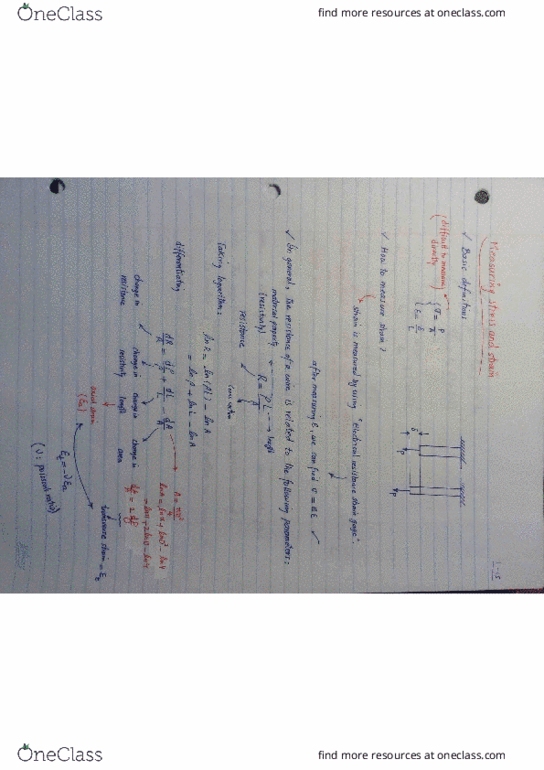 OneClass
find more resources at oneclass.com
Measuring stress and strain
1-15
✓ Basic definitions
(difficult to measure directly)
σ = P/A
ε = δ/L
δ
P
P
✓ How to measure strain?
strain is measured by using "electrical resistance strain gage".
after measuring ε, we can find σ = Eε ✓
✓ In general, the resistance of a wire is related to the following parameters:
material property (resistivity) ← R = ρL/A → length
resistance
Taking logarithms
ln R = ln(ρL) - ln A
= ln ρ + ln L - ln A
differentiating
dR/R = dρ/ρ + dL/L - dA/A
change in resistance
change in resistivity
change in length
change in area
axial strain (εa)
A = πD²/4
ln A = ln π + ln D² - ln 4
= ln π + 2 ln D - ln 4
dA/A = 2 dD/D
transverse strain = εt
εt = -ν εa
(ν: poisson's ratio)
OneClass
find more resources at oneclass.com